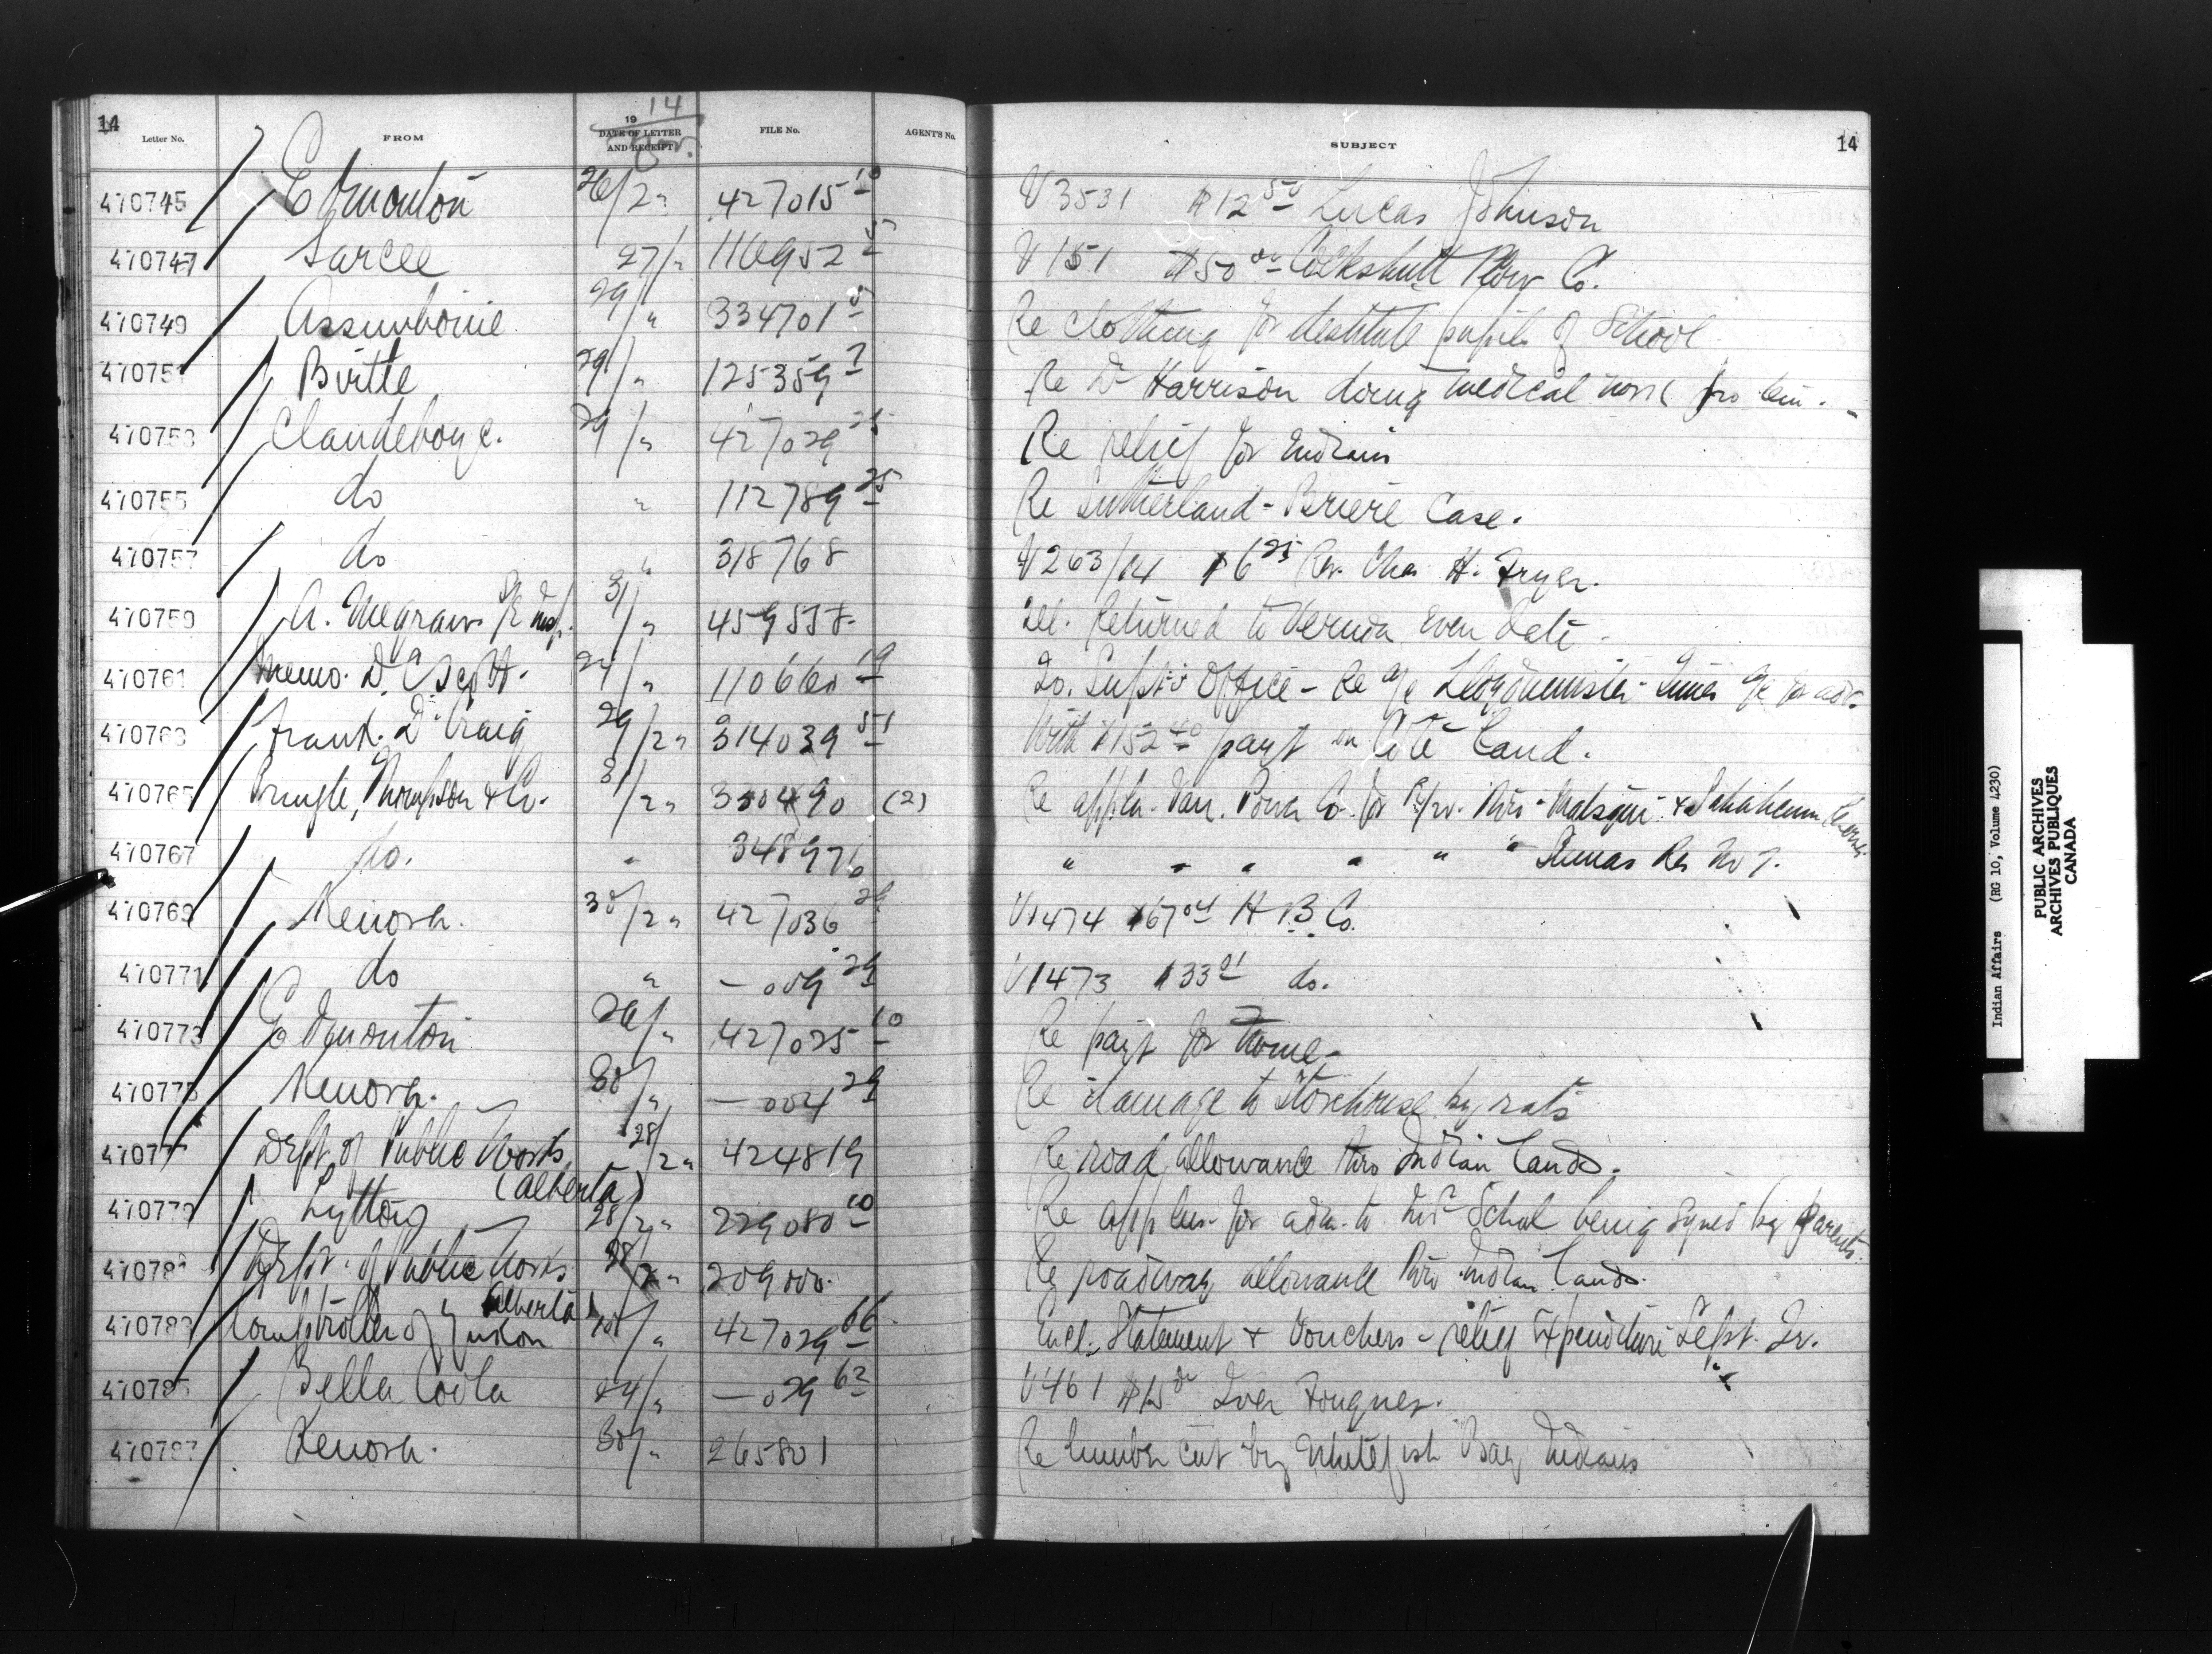 14
Letter No. FROM 1914 DATE OF LETTER AND RECEIPT FILE No. AGENT'S No. SUBJECT 14
470745 Edmonton 26/2" 427015 10 V 3531 $12 50 Lucas Johnson
470747 Sarcee 27/" 116952 5 V 151 $50 00 Cockshutt Plow Co.
470749 Assiniboine 29/" 334701 5 Re clothing for destitute pupils of School
470751 Birtle 29/" 125359 7 Re Dr Harrison doing medical work pro tem.
470753 Clandeboye. 29/" 427029 25 Re relief for Indians
470755 do " 112789 25 Re Sutherland-Briere Case.
470757 do " 318768 V 263/14 $6 25 Rev. Chas H. Fryer.
470759 A. Megraw 31/" 459558 Returned to Vernon even date.
470761 Memo. D. C. Scott. 24/" 110660 19 To Supt's Office - Re a/c Lloydminster Times a/c for adv.
470763 Frank. D. Craig 29/2" 314039 51 With $152 40 payt on Cote Land.
470765 Pringle, Thompson & Co. 31/2" 350490 (2) Re appln. Van. Power Co. for R/w. thro Matsqui & Sahhacum
470767 do. " 348976 " " " " " " Sumas Res No 7.
470769 Kenora. 30/2" 427036 29 V 1474 $67 04 H. B. Co.
470771 do " —009 29 V 1473 $33 01 do.
470773 Edmonton 26/" 427025 10 Re payt for
470775 Kenora. 30/" —004 29 Re damage to Storehouse by rats
470777 Dept. of Public Works (Alberta) 28/2" 424819 Re road allowance thro Indian Lands.
470779 Lytton 28/2" 229080 10 Re applns. for adm. to Ind School being signed by parents.
Dept. of Public Works Alberta 28/2" 209000. Re roadway allowance thro Indian Lands.
470783 Comptroller of Yukon /" 427029 66 Encl. Statement & Vouchers - relief expenditure Sept. Qr.
470785 Bella Coola 24/" —029 62 V 461 $15 00 Iver Fougner.
470787 Kenora. 30/" 265801 Re lumber cut by Whitefish Bay Indians
Indian Affairs (RG 10, Volume 4230)
PUBLIC ARCHIVES
ARCHIVES PUBLIQUES
CANADA